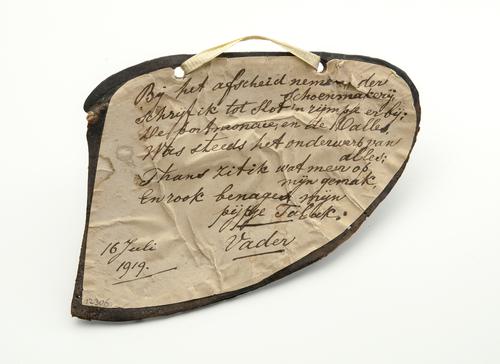 Bij het afscheid nemen der
Schoenmakerij
Schrijf ik tot slot 'n rijmpje er bij;
De, en de Malles,
Was steeds het onderwerp van
alles;
Thans zit ik wat meer op
mijn gemak,
En rook benagend mijn
pijpje Tabak.
Vader
16 Juli
1919.
12306